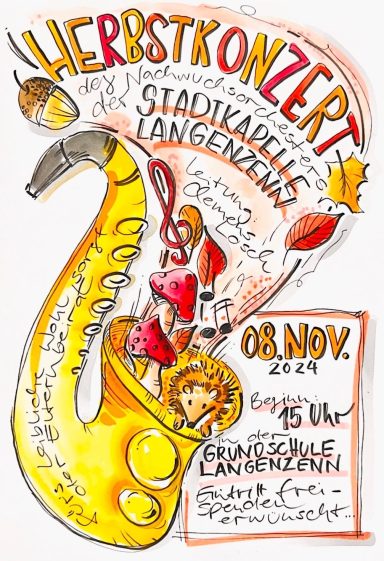 HERBSTKONZERT
des Nachwuchsorchesters
der STADTKAPELLE
LANGENZENN
Leitung:
Clemens
08. NOV.
2024
Beginn:
15 Uhr
in der
GRUNDSCHULE
LANGENZENN
Eintritt frei -
Spenden
erwünscht...
Fürs Leibliche Wohl sorgt
der Elternbeirat